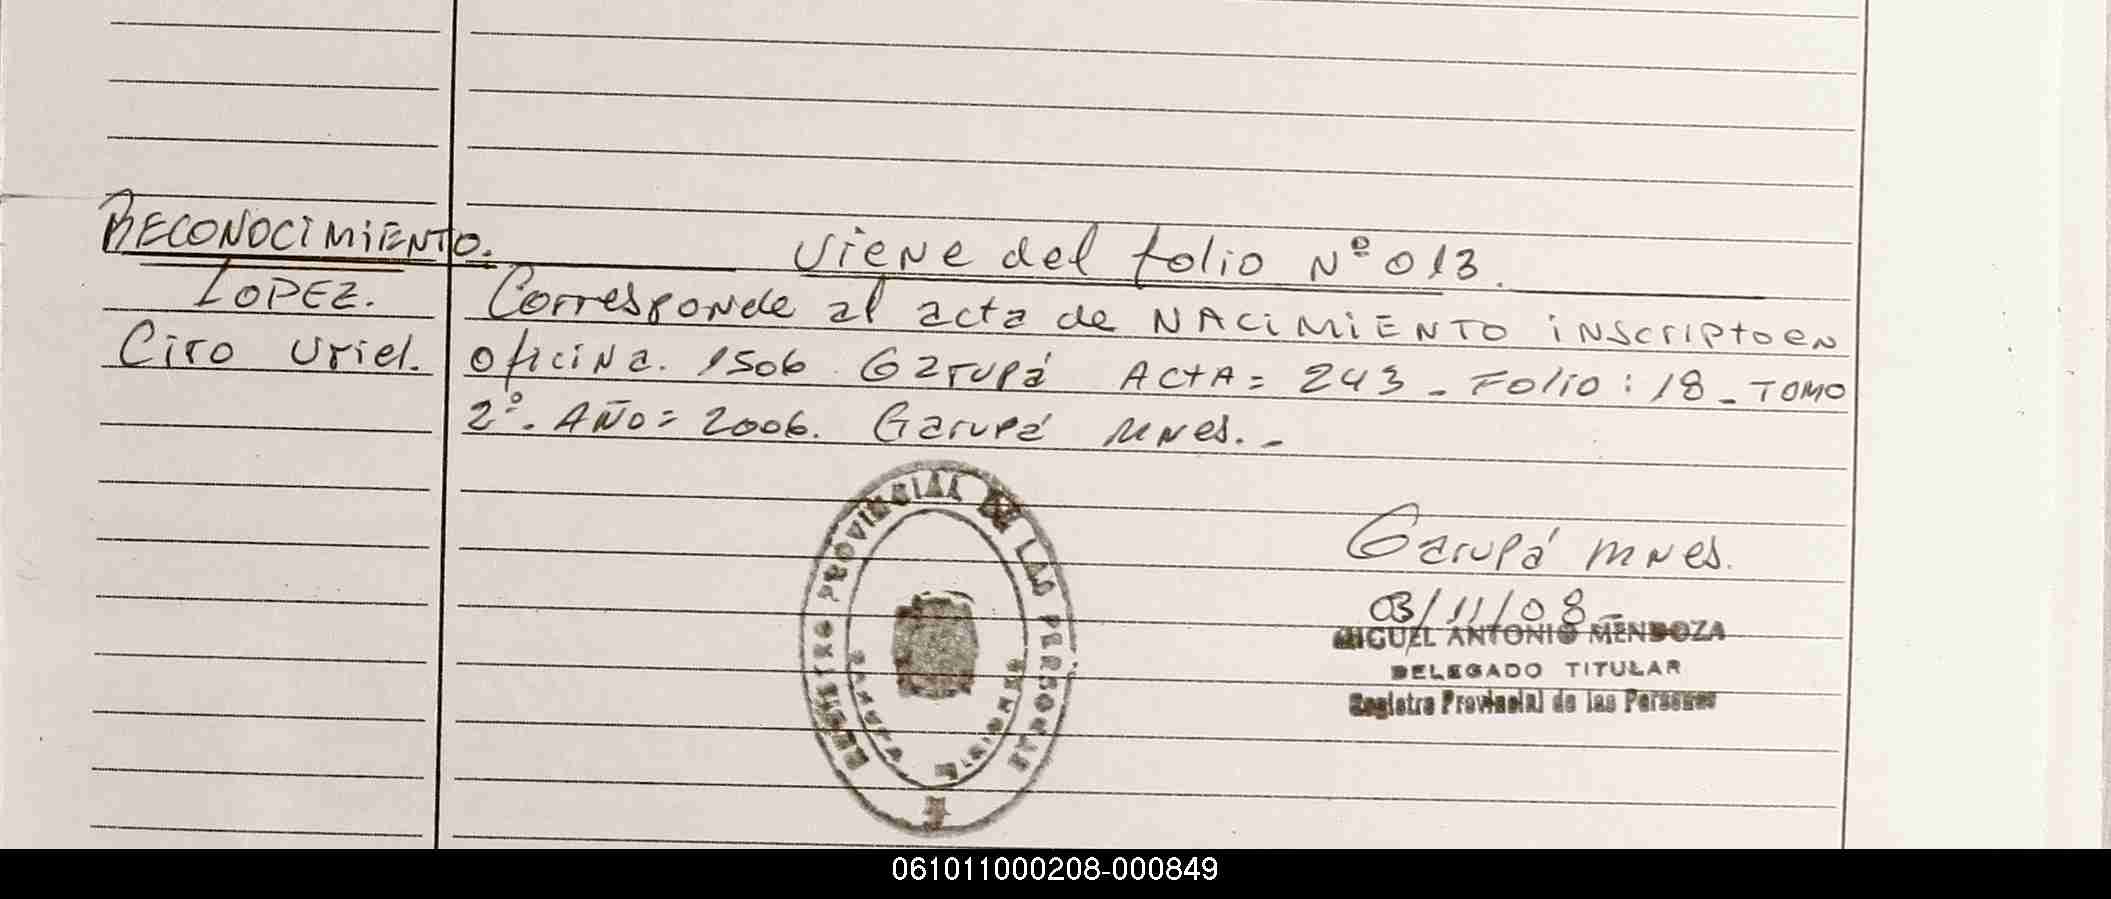 RECONOCIMIENTO.
Viene del folio Nº 013.
LOPEZ.
Ciro Uriel.
Corresponde al acta de NACIMIENTO inscripto en
oficina. 1506 Garupá ACTA= 243 - Folio: 18 - TOMO
2º. AÑO= 2006. Garupá MNes. -
REGISTRO PROVINCIAL DE LAS PERSONAS
MISIONES
Garupá MNes.
03/11/08
MIGUEL ANTONIO MENDOZA
DELEGADO TITULAR
Registro Provincial de las Personas
061011000208-000849